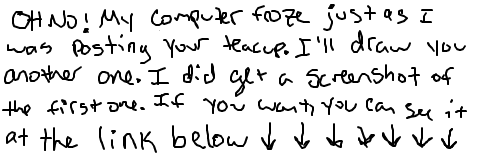 OH NO! My computer froze just as I
was posting your teacup. I'll draw you
another one. I did get a screenshot of
the first one. If you want, you can see it
at the link below ↓ ↓ ↓ ↓ ↓ ↓ ↓